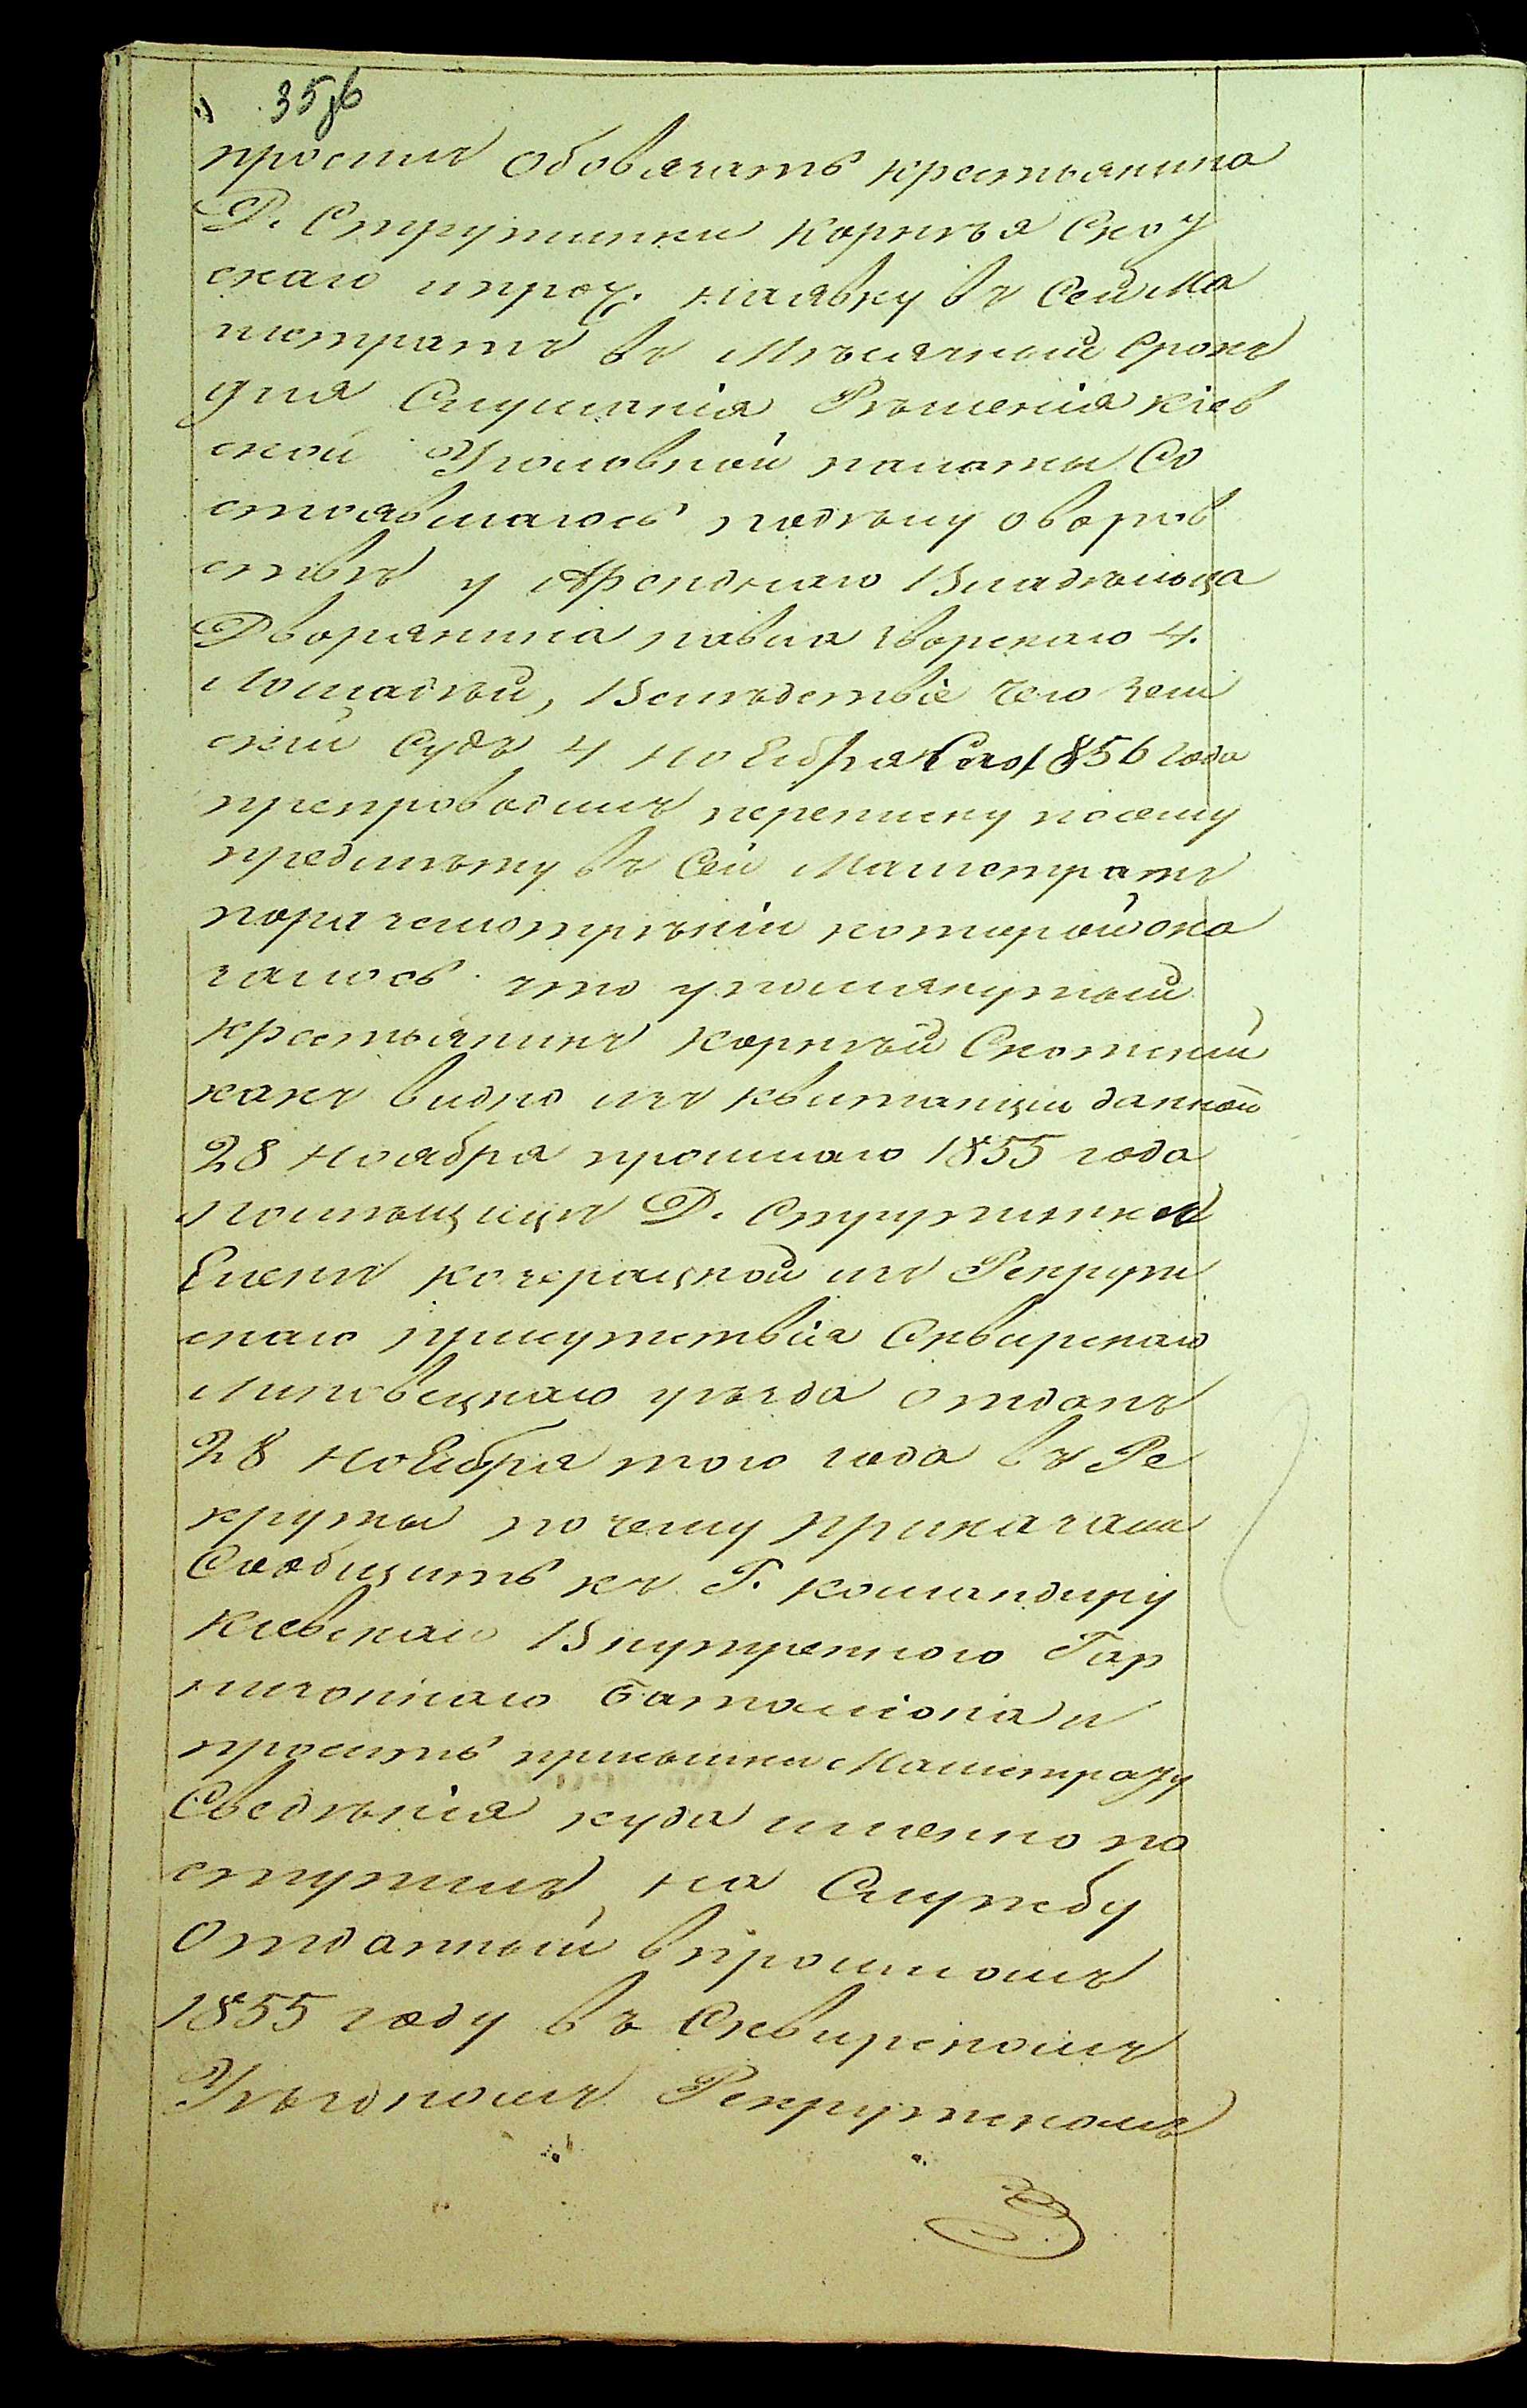 35 об
просилъ обовязатъ крестьянина
Д. Струтинки Корнѣя Ско₇
скаго и проч. наявку въ Сей Ма
гистратъ въ мѣсячный срокъ
для Слушанія Рѣшенія Кіев
ской Уголовной палаты Со
стоявшагось подѣлу о воров
ствѣ у Аренднаго Владѣльца
Дворянина павла 4.
лошадѣй, Вслѣдствіе чего Зем
скій Судъ 4 ноября сего 1856 года
препроводилъ переписку посему
предмѣту въ Сей Магистратъ
поразсмотрѣніи которой ока
залось что упомянутый
крестьянинъ Корнѣй Скотскій
какъ видно изъ квитанціи данной
28 ноября прошлаго 1855 года
помѣщицѣ Д. Струтинки
Еленѣ изъ Рекрут
скаго присутствія Сквирскаго
Липовецкаго уѣзда отданъ
28 ноября того года въ Ре
круты почему приказали
Сообщить къ Г. командиру
Кіевскаго Внутренного Гар
низоннаго баталіона и
просить присылки Магистрату
Сведѣнія куда именно по
ступилъ на Службу
Отданный впрошломъ
1855 году въ Сквирскомъ
Уѣздномъ Рекрутскомъ